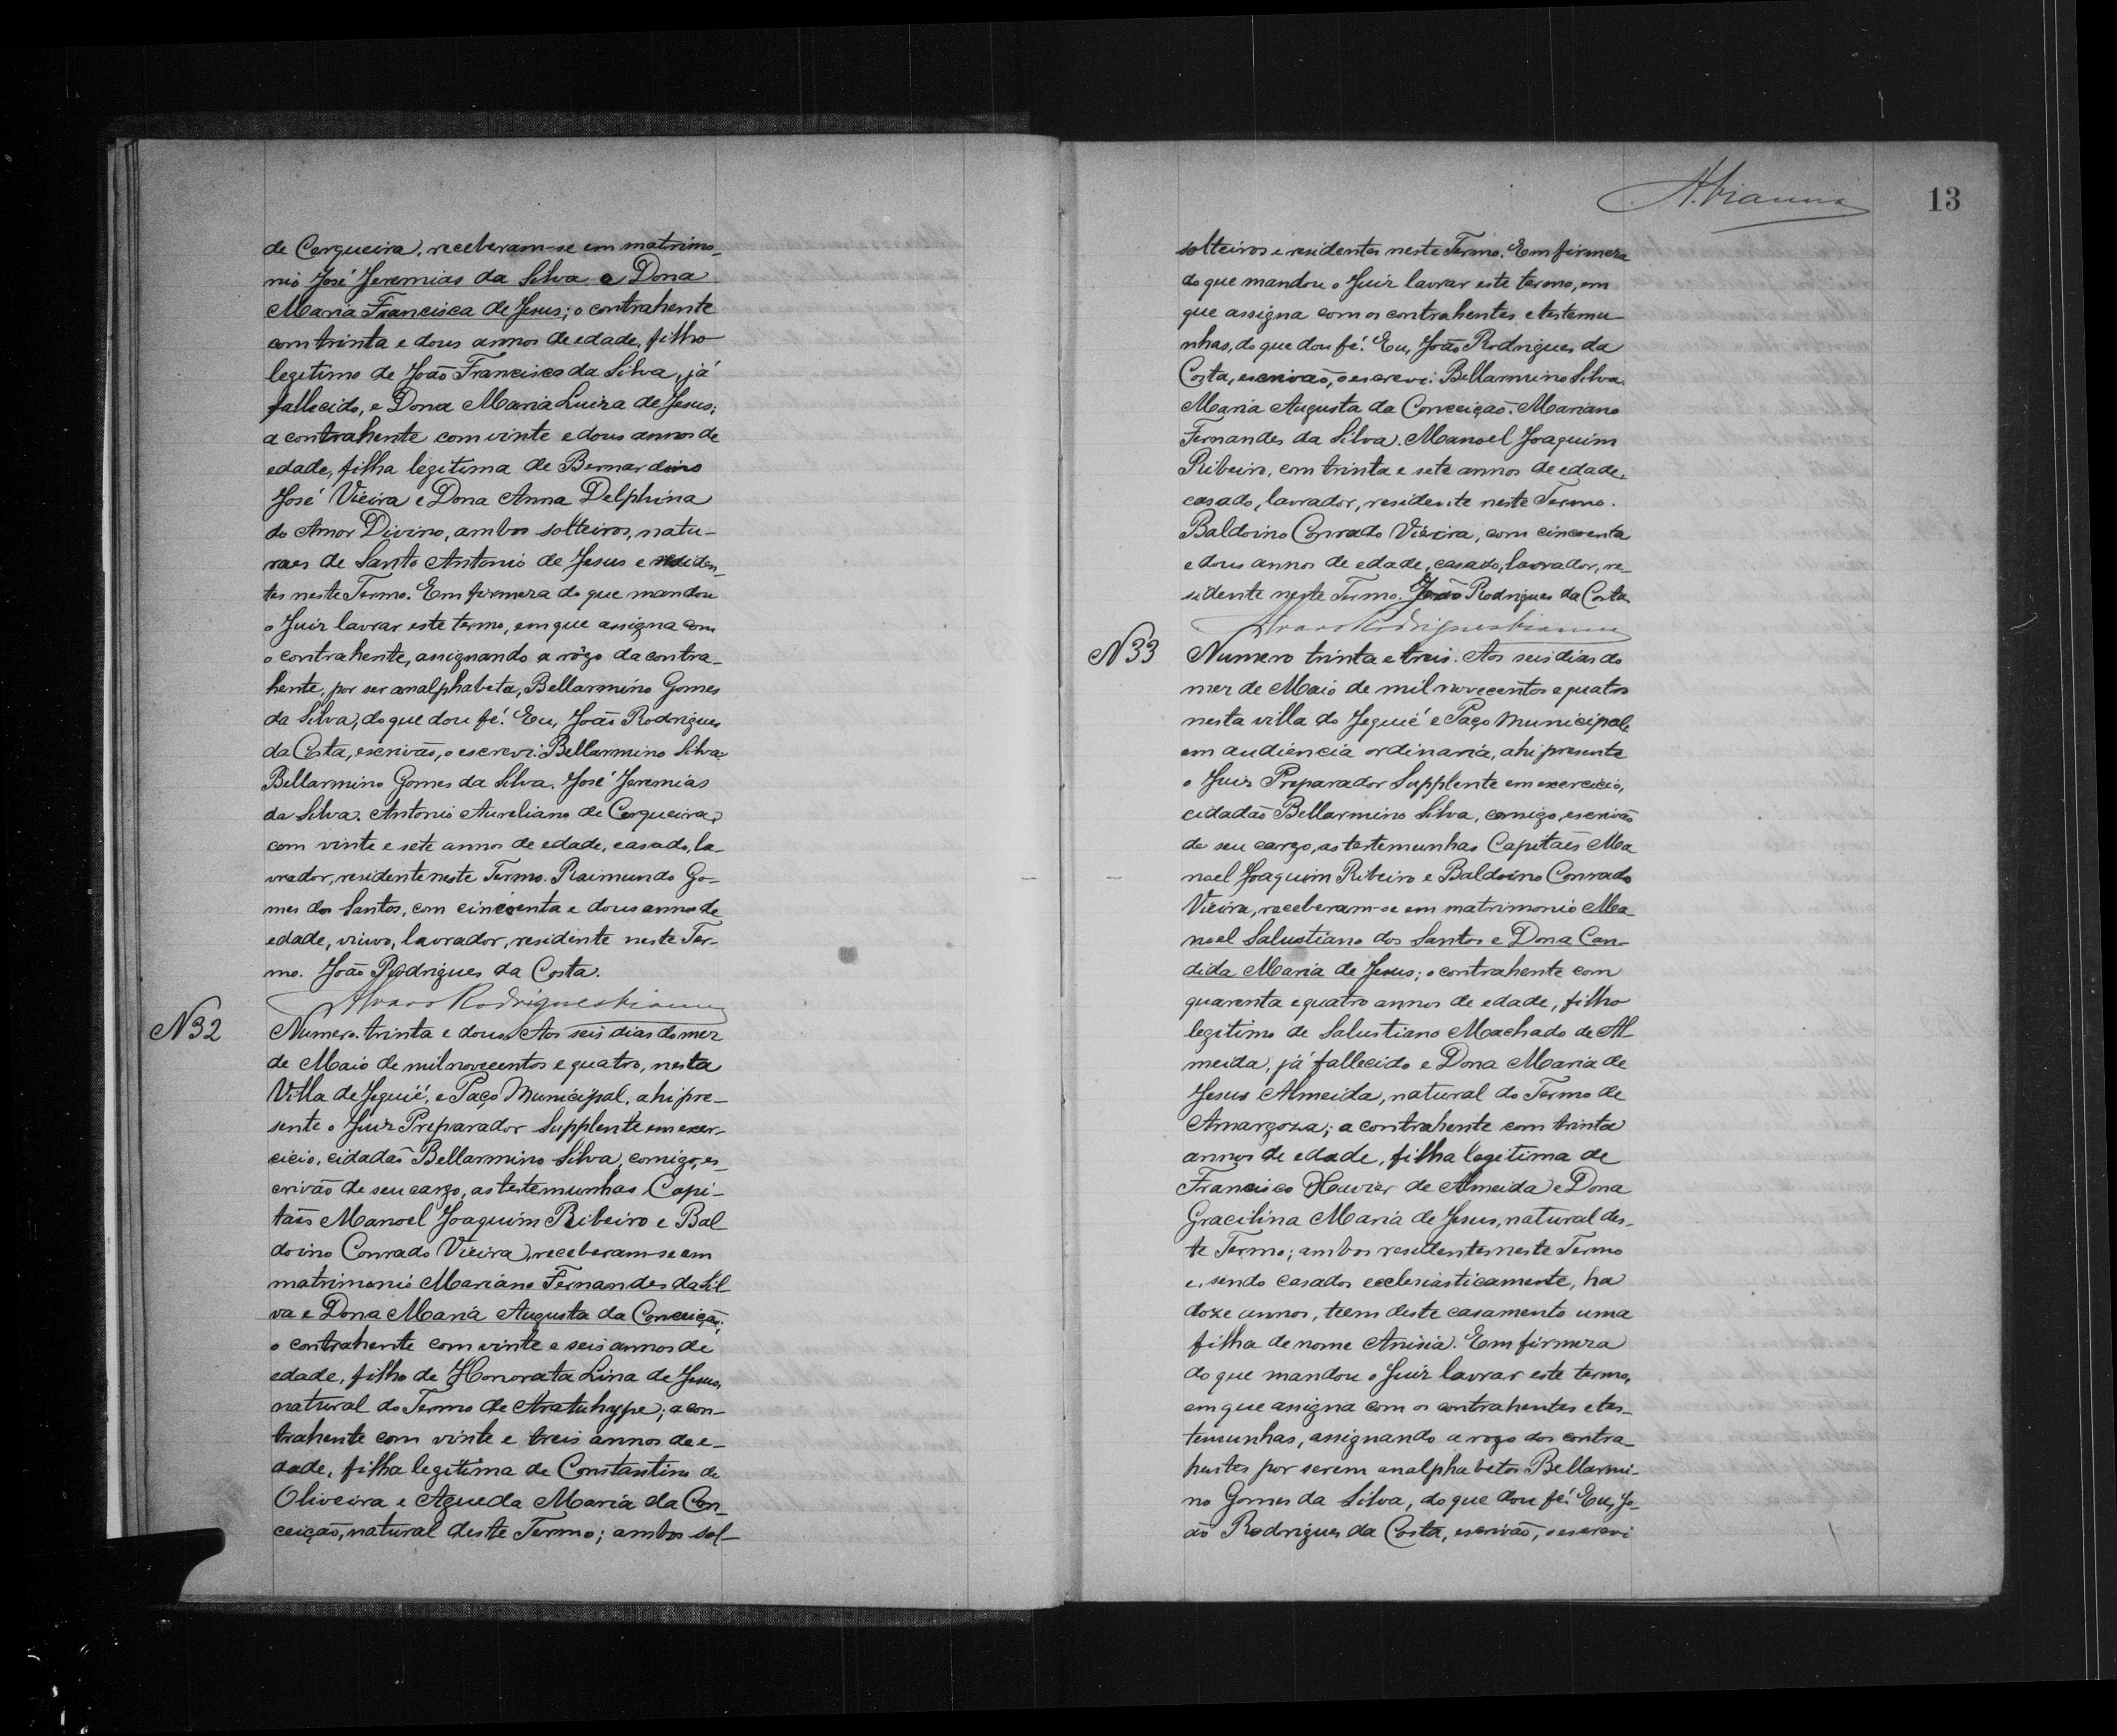 de Cerqueira, receberam-se em matrimo-
nio José Jeremias da Silva e Dona
Maria Francisca de Jesus; o contrahente
com trinta e dous annos de edade, filho
legitimo de João Francisco da Silva, já
fallecido, e Dona Maria Luiza de Jesus;
a contrahente com vinte e dous annos de
edade, filha legitima de Bernardino
José Vieira e Dona Anna Delphina
do Amor Divino, ambos solteiros, natu-
raes de Santo Antonio de Jesus e residen-
tes neste Termo. Em firmeza do que mandou
o Juiz lavrar este termo, em que assigna com
o contrahente, assignando a rôgo da contra-
hente, por ser analphabeta, Bellarmino Gomes
da Silva, do que dou fé. Eu, João Rodrigues
da Costa, escrivão, o escrevi. Bellarmino Silva.
Bellarmino Gomes da Silva. José Jeremias
da Silva. Antonio Aureliano de Cerqueira,
com vinte e sete annos de edade, casado, la-
vrador, residente neste Termo. Raimundo Go-
mes dos Santos, com cincoenta e dous annos de
edade, viuvo, lavrador, residente neste Ter-
mo. João Rodrigues da Costa.
Alvaro Rodrigues Vianna
N 32
Numero trinta e dous. Aos seis dias do mez
de Maio de mil novecentos e quatro, nesta
Villa de Jequié, e Paço Municipal, ahi pre-
sente o Juiz Preparador Supplente em exer-
cicio, cidadão Bellarmino Silva, comigo, es-
crivão de seu cargo, as testemunhas Capi-
tães Manoel Joaquim Ribeiro e Bal-
doino Conrado Vieira, receberam-se em
matrimonio Mariano Fernandes da Sil-
va e Dona Maria Augusta da Conceição;
o contrahente com vinte e seis annos de
edade, filho de Honorata Lina de Jesus,
natural do Termo de Aratuhype; a con-
trahente com vinte e treis annos de e-
dade, filha legitima de Constantino de
Oliveira e Agueda Maria da Con-
ceição, natural deste Termo; ambos sol-
A. Vianna
13
solteiros e residentes neste Termo. Em firmeza
do que mandou o Juiz lavrar este termo, em
que assigna com os contrahentes e testemu-
nhas, do que dou fé. Eu, João Rodrigues da
Costa, escrivão, o escrevi. Bellarmino Silva.
Maria Augusta da Conceição. Mariano
Fernandes da Silva. Manoel Joaquim
Ribeiro, com trinta e sete annos de edade,
casado, lavrador, residente neste Termo.
Baldoino Conrado Vieira, com cincoenta
e dous annos de edade, casado, lavrador, re-
sidente neste Termo. João Rodrigues da Costa.
Alvaro Rodrigues Vianna
N 33
Numero trinta e treis. Aos seis dias do
mez de Maio de mil novecentos e quatro
nesta villa do Jequié e Paço Municipal,
em audiencia ordinaria, ahi presente
o Juiz Preparador Supplente em exercicio,
cidadão Bellarmino Silva, comigo, escrivão
de seu cargo, as testemunhas Capitães Ma-
noel Joaquim Ribeiro e Baldoino Conrado
Vieira, receberam-se em matrimonio Ma-
noel Salustiano dos Santos e Dona Can-
dida Maria de Jesus; o contrahente com
quarenta e quatro annos de edade, filho
legitimo de Salustiano Machado de Al-
meida, já fallecido e Dona Maria de
Jesus Almeida, natural do Termo de
Amargoza; a contrahente com trinta
annos de edade, filha legitima de
Francisco Xavier de Almeida e Dona
Gracilina Maria de Jesus, natural des-
te Termo; ambos residentes neste Termo
e, sendo casados ecclesiasticamente, ha
doze annos, teem deste casamento uma
filha de nome Anisia. Em firmeza
do que mandou o Juiz lavrar este termo,
em que assigna com os contrahentes e tes-
temunhas, assignando a rogo dos contra-
hentes por serem analphabetos Bellarmi-
no Gomes da Silva, do que dou fé. Eu, Jo-
ão Rodrigues da Costa, escrivão, o escrevi